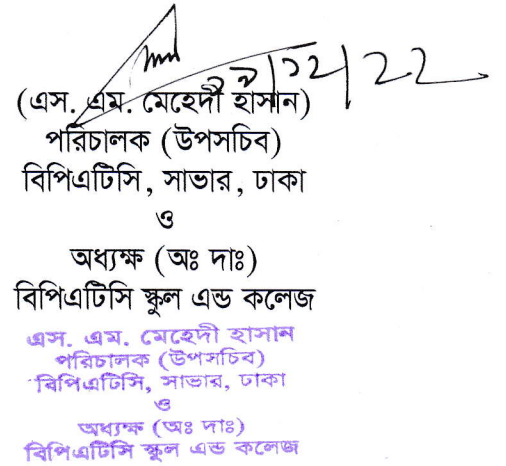 ২৯/১২/22
(এস. এম. মেহেদী হাসান)
পরিচালক (উপসচিব)
বিপিএটিসি, সাভার, ঢাকা
ও
অধ্যক্ষ (অঃ দাঃ)
বিপিএটিসি স্কুল এন্ড কলেজ
এস. এম. মেহেদী হাসান
পরিচালক (উপসচিব)
বিপিএটিসি, সাভার, ঢাকা
ও
অধ্যক্ষ (অঃ দাঃ)
বিপিএটিসি স্কুল এন্ড কলেজ